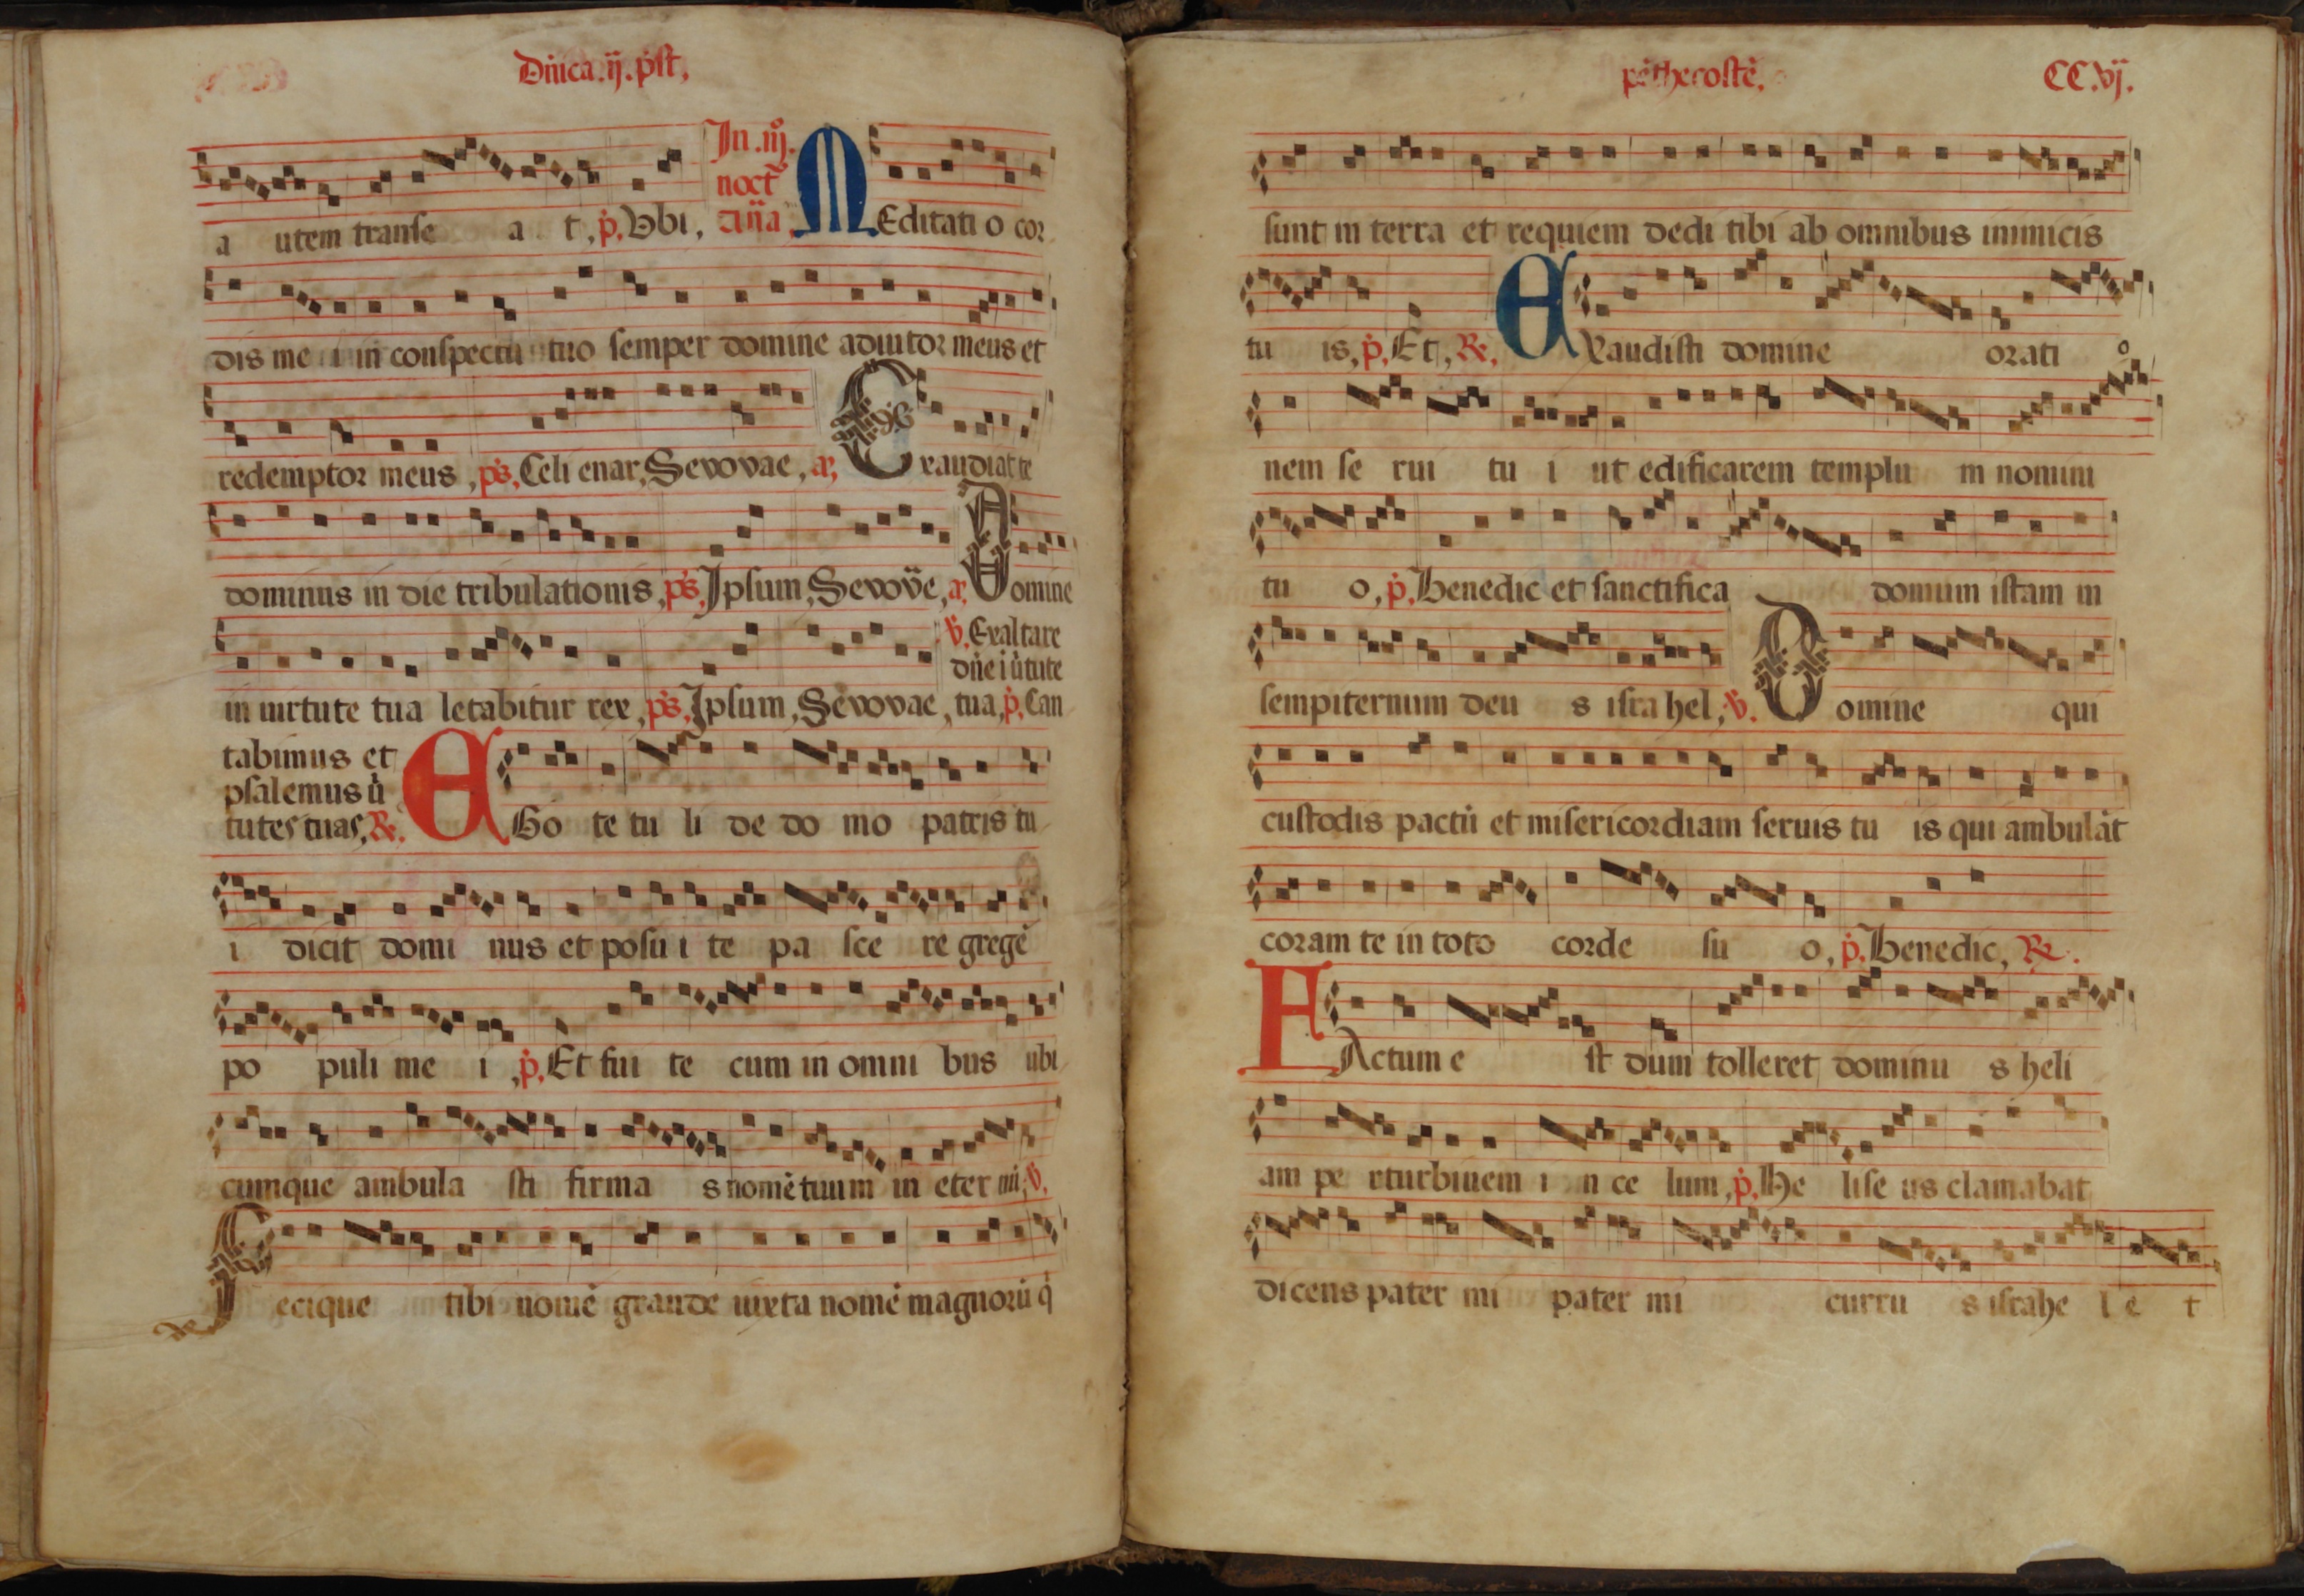 Dn̄ica.ij.pꝰst,
In .iij.
noct
Antia
a utem transe a t, p̃. Vbi, MEditati o cor
dis me i in conspectu tuo semper domine adiutor meus et
redemptor meus, ps̃, Celi enar, Sevovae, a, Exaudiat te
dominus in die tribulationis, ps̃, Ipsum, Sevov̈e, a, Domine
v̓. Exaltare
dn̄e i ũtute
in uirtute tua letabitur rex, ps̃, Ipsum, Sevovae, tua, p̃. Can
tabimus et
psalemus ũ
tutes tuas, ℞. EGo te tu li de do mo patris tu
i dicit domi nus et posu i te pa sce re gregē
po puli me i, p̃. Et fui te cum in omni bus ubi
cumque ambula sti firma s nomē tuum in eter nū, v̓.
Fecique tibi nomē grande iuxta nomē magnorū q̄
pēthecostē,
CC.vj.
sunt in terra et requiem dedi tibi ab omnibus inimicis
tu is, p̃. Et, ℞. EXaudisti domine orati o
nem se rui tu i ut edificarem templu m nomini
tu o, p̃. Benedic et sanctifica domum istam in
sempiternum deu s israhel, v̓. Domine qui
custodis pactū et misericordiam seruis tu is qui ambulāt
coram te in toto corde su o, p̃. Benedic, ℞.
FActum e st dum tolleret dominu s heli
am pe rturbinem i n ce lum, p̃. He lise us clamabat
dicens pater mi pater mi curru s israhe l e t